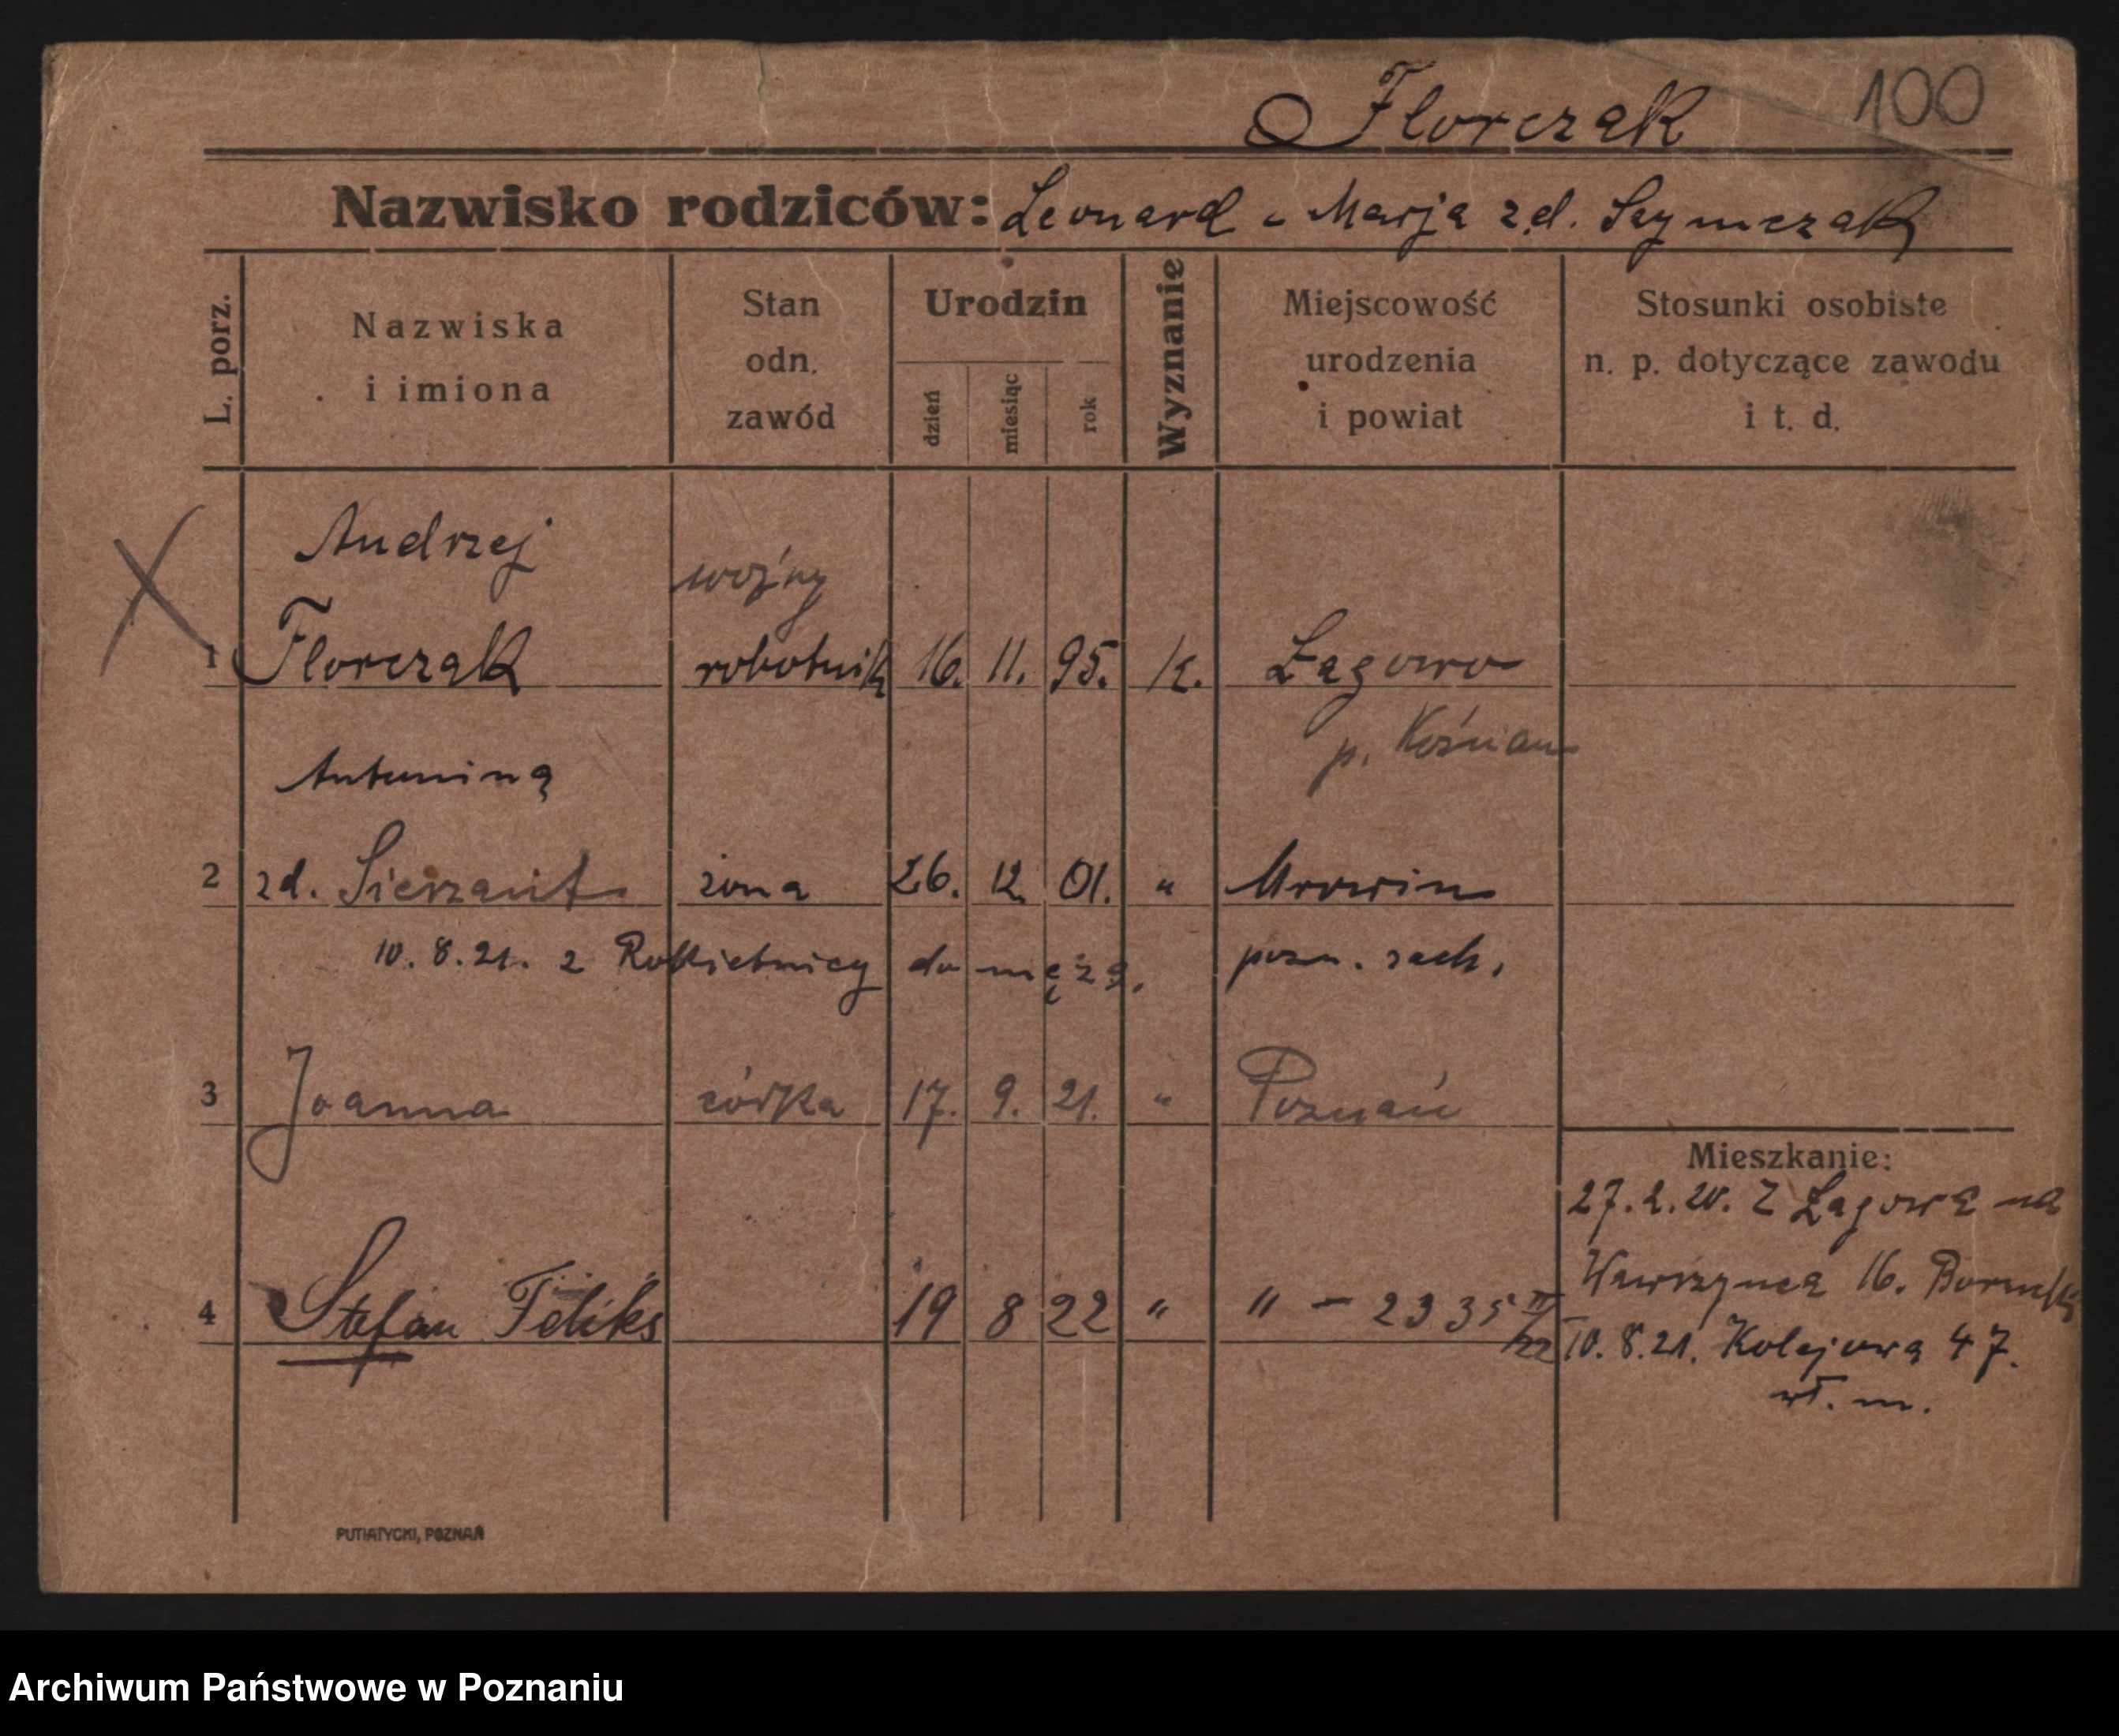 Florczak 100
Nazwisko rodziców: Leonard - Marja z.d. Szymczak
L. porz.
Nazwiska
i imiona
Stan
odn.
zawód
Urodzin
dzień
miesiąc
rok
Wyznanie
Miejscowość
urodzenia
i powiat
Stosunki osobiste
n. p. dotyczące zawodu
i t. d.
Andrzej
woźny
1 Florczak robotnik 16. 11. 95. k. Łagowo
p. Kościan
Antonina
2 zd. Sierzant żona 26. 12. 01. " Mrowino
10.8.21. z Rokietnicy do męża. pozn. zach.
3 Joanna córka 17. 9. 21. " Poznań
Mieszkanie:
27.2.20. Z Łagowa na
Wawrzynca 16.
4 Stefan Feliks 19 8 22 " " - 2335 II/22
10.8.21. Kolejowa 47.
wł. m.
PUTIATYCKI, POZNAŃ
Archiwum Państwowe w Poznaniu